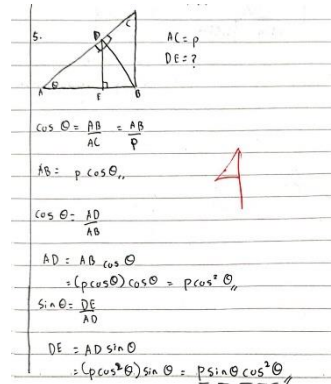 5.
C
D
A θ E B
AC = p
DE = ?
cos θ = AB/AC = AB/p
AB = p cos θ,,
cos θ = AD/AB
AD = AB cos θ
= (p cos θ) cos θ = p cos² θ,,
sin θ = DE/AD
DE = AD sin θ
= (p cos² θ) sin θ = p sin θ cos² θ,,